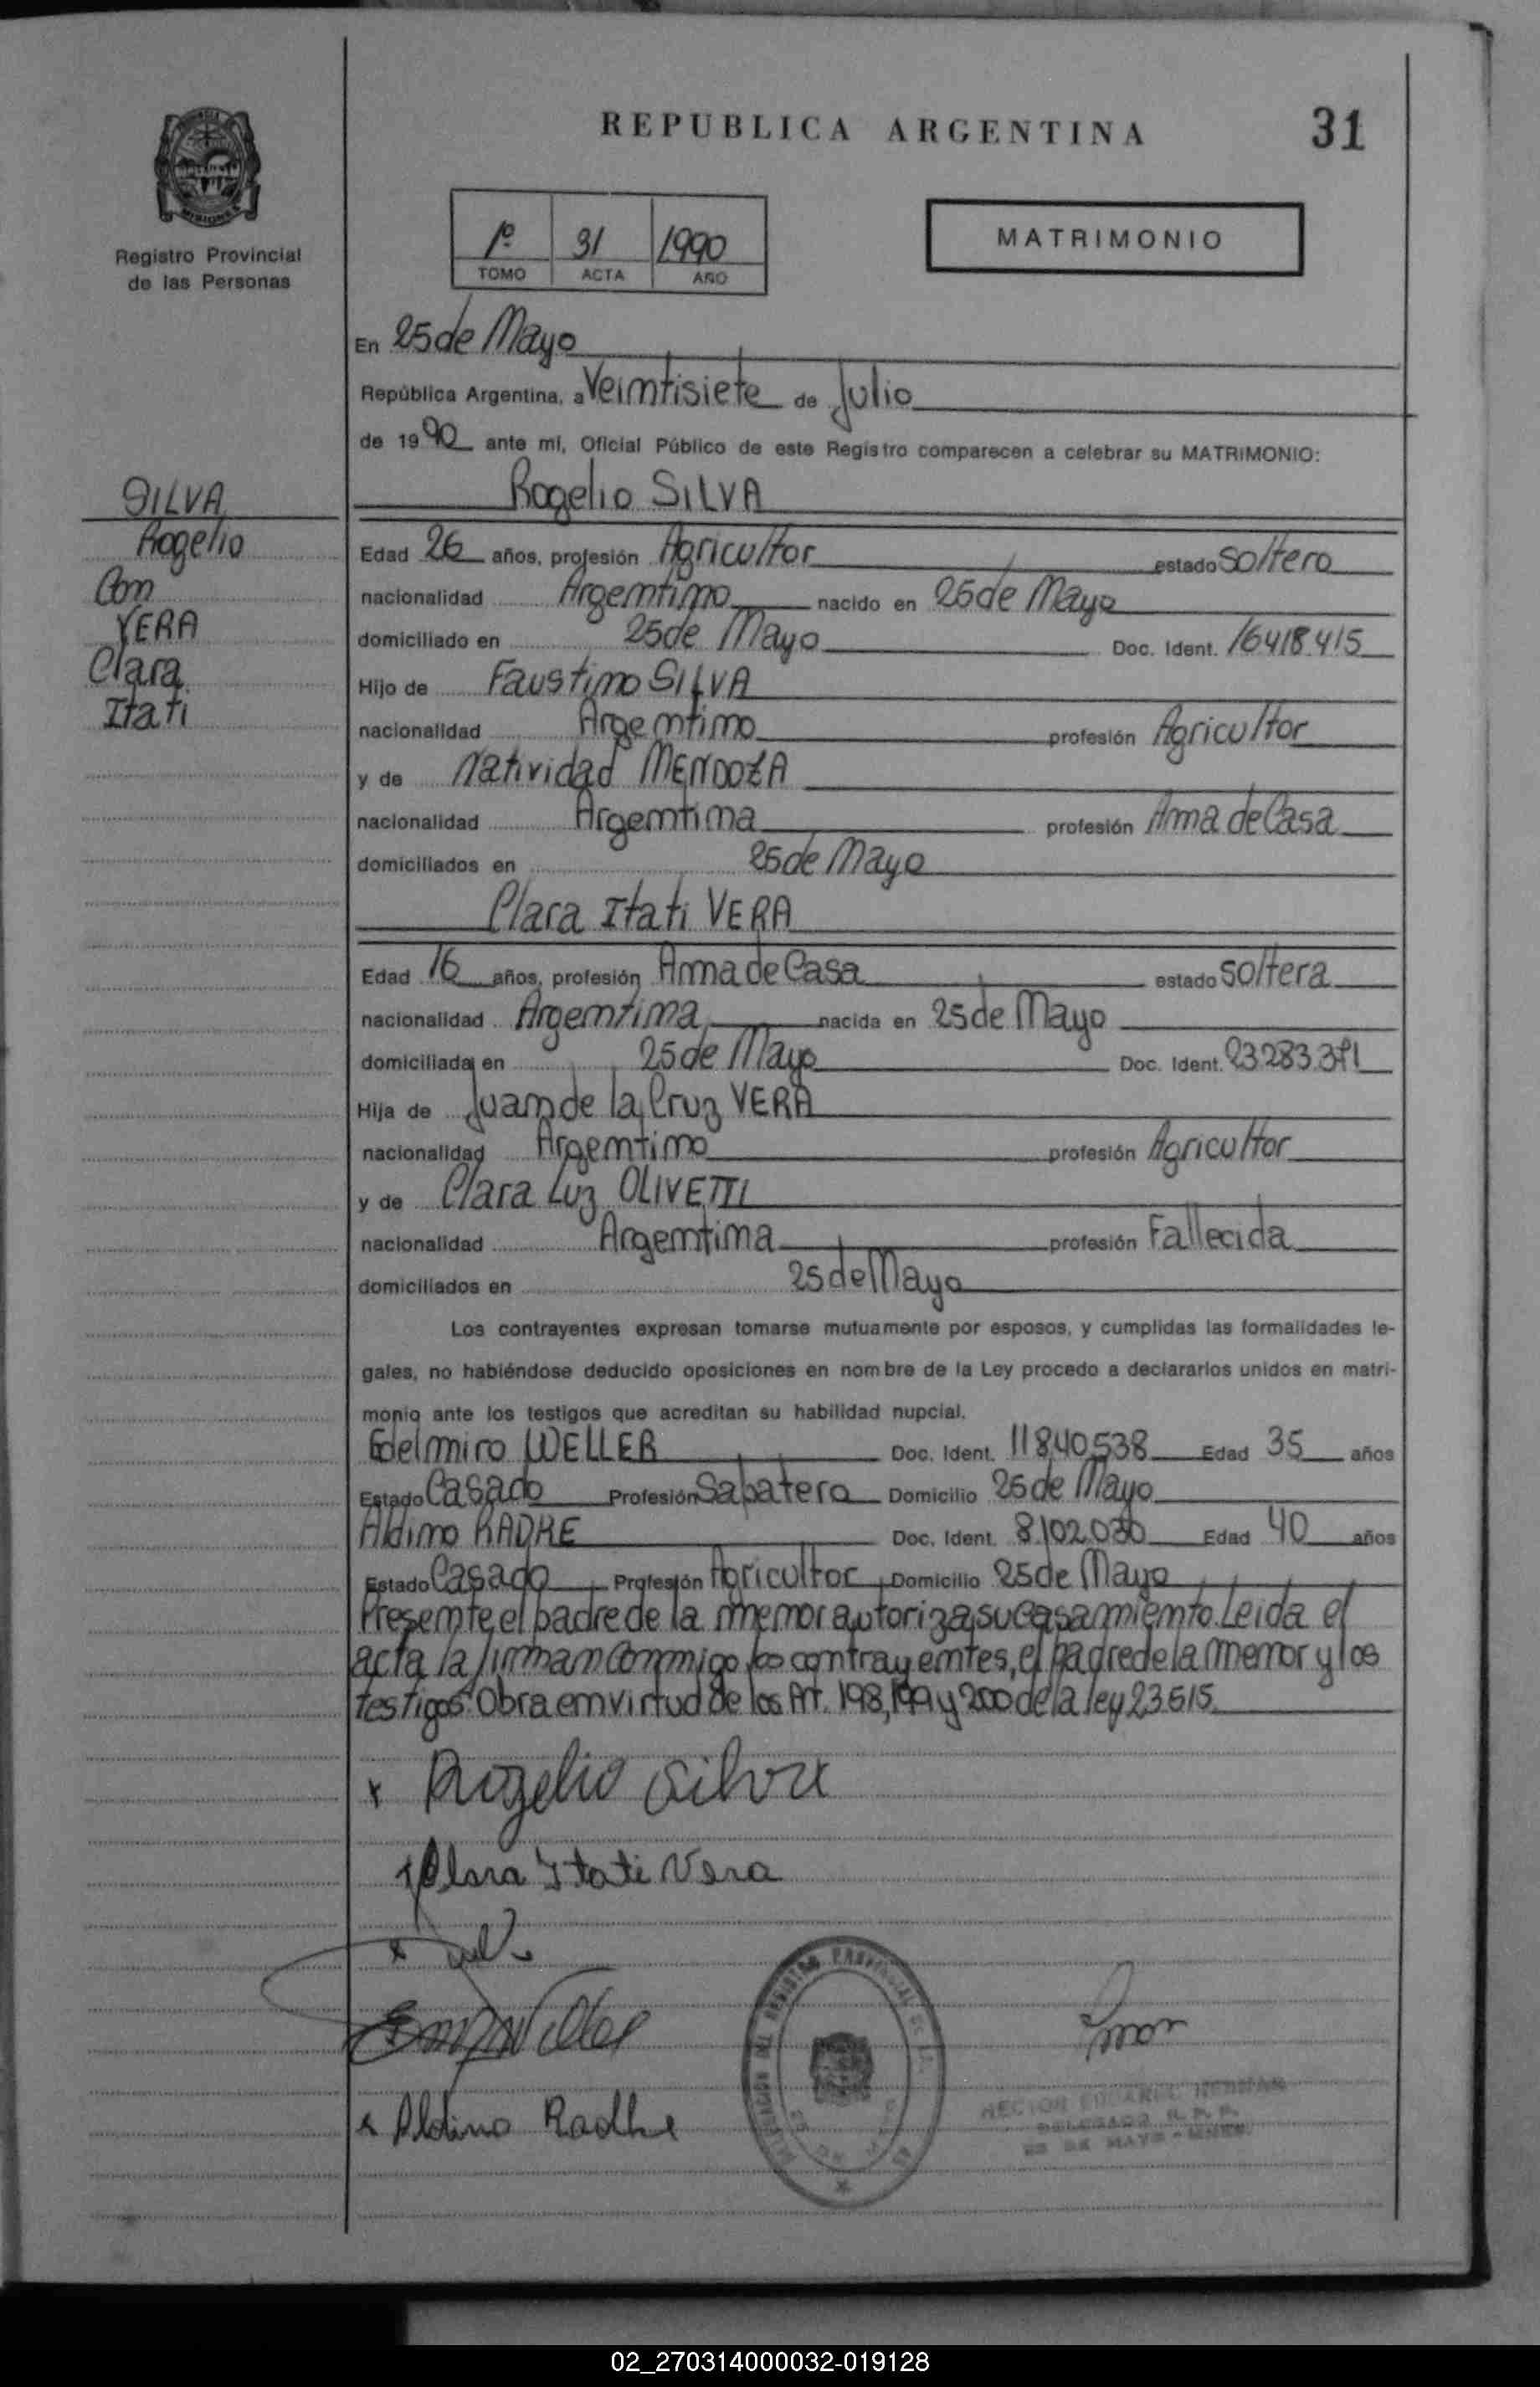 REPUBLICA ARGENTINA
31
MISIONES
Registro Provincial
de las Personas
1º 31 1990
TOMO ACTA AÑO
MATRIMONIO
En 25 de Mayo
República Argentina, a Veintisiete de Julio
de 1990 ante mi, Oficial Público de este Registro comparecen a celebrar su MATRIMONIO:
SILVA
Rogelio
Con
VERA
Clara
Itati
Rogelio SILVA
Edad 26 años, profesión Agricultor estado Soltero
nacionalidad Argentino nacido en 25 de Mayo
domiciliado en 25 de Mayo Doc. Ident. 16418415
Hijo de Faustino SILVA
nacionalidad Argentino profesión Agricultor
y de Natividad MENDOZA
nacionalidad Argentina profesión Ama de Casa
domiciliados en 25 de Mayo
Clara Itati VERA
Edad 16 años, profesión Ama de Casa estado Soltera
nacionalidad Argentina nacida en 25 de Mayo
domiciliada en 25 de Mayo Doc. Ident. 23283371
Hija de Juan de la Cruz VERA
nacionalidad Argentino profesión Agricultor
y de Clara Luz OLIVETTI
nacionalidad Argentina profesión Fallecida
domiciliados en 25 de Mayo
Los contrayentes expresan tomarse mutuamente por esposos, y cumplidas las formalidades le-
gales, no habiéndose deducido oposiciones en nombre de la Ley procedo a declararlos unidos en matri-
monio ante los testigos que acreditan su habilidad nupcial.
Edelmiro WELLER Doc. Ident. 11840538 Edad 35 años
Estado Casado Profesión Sapatero Domicilio 25 de Mayo
Aldino RADKE Doc. Ident. 8102030 Edad 40 años
Estado Casado Profesión Agricultor Domicilio 25 de Mayo
Presente el padre de la menor autoriza su casamiento. Leida el
acta la firman conmigo los contrayentes, el padre de la menor y los
testigos. Obra en virtud de los Art. 198, 199 y 200 de la ley 23.515.
x Rogelio Silva
Clara Itati Vera
x Aldino Radke
HECTOR
DELEGADO R. P. P.
25 DE MAYO - MNES.
02_270314000032-019128